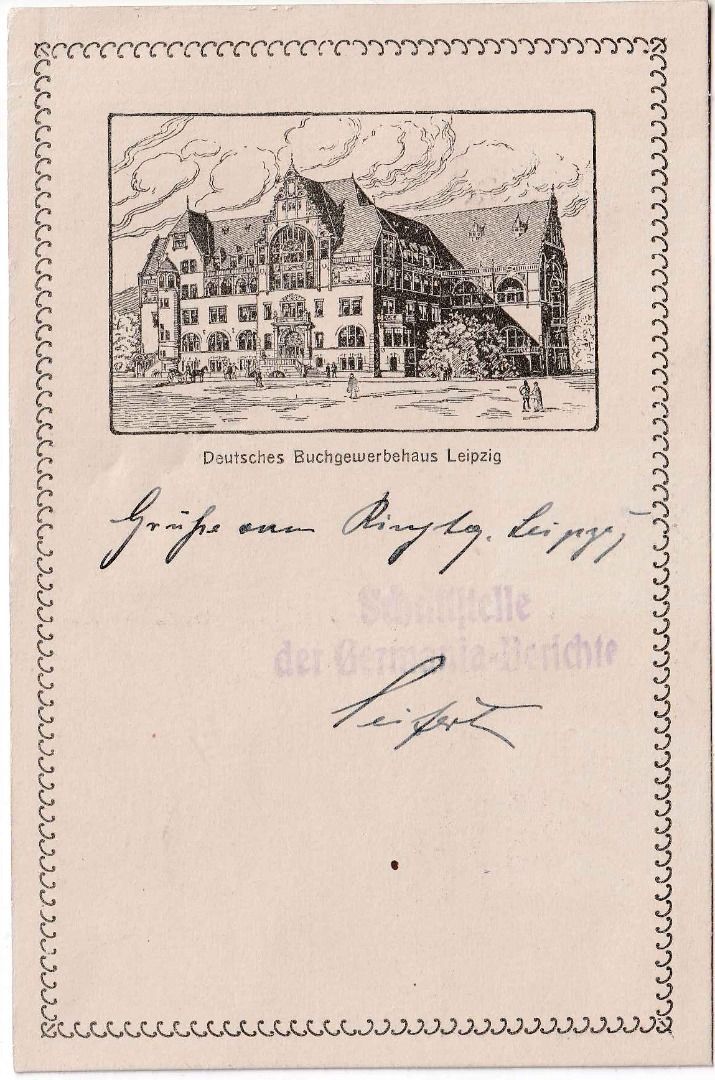 Deutsches Buchgewerbehaus Leipzig
Grüße vom Ringtg. Leipzig
Schriftstelle
der Germania-Berichte
Seifert